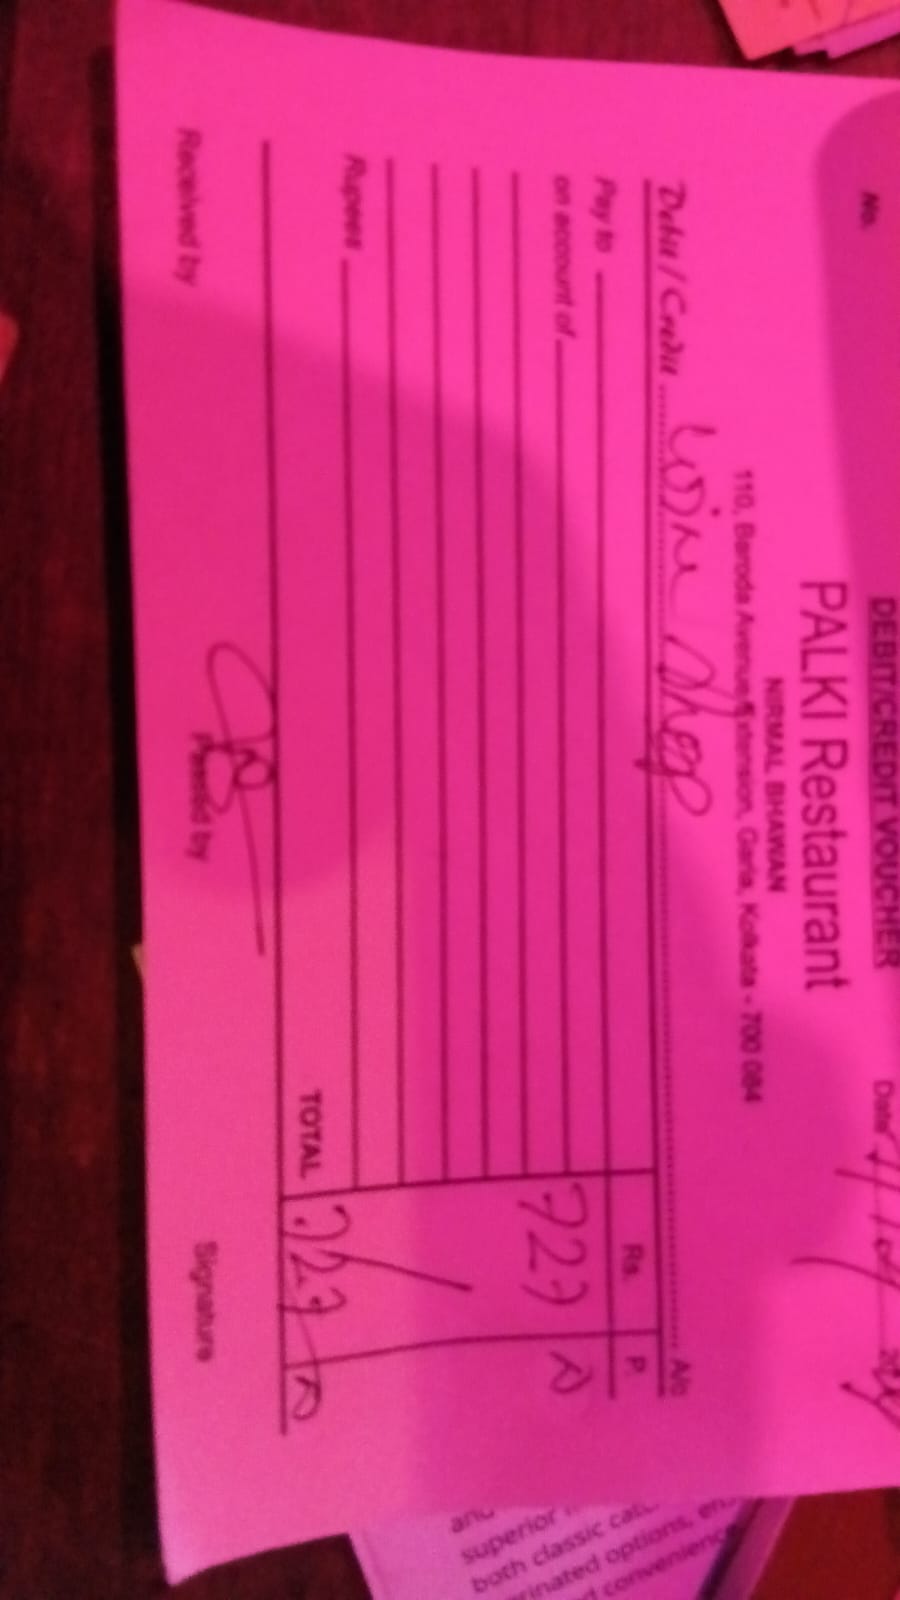 DEBIT/CREDIT VOUCHER
No.
Date
PALKI Restaurant
NIRMAL BHAWAN
110, Baroda Avenue Extension, Garia, Kolkata - 700 084
Debit / Credit Wine Shop A/c
Rs. P.
Pay to
on account of
Rupees
TOTAL
Received by Passed by Signature
and
superior
both classic
options,
convenience